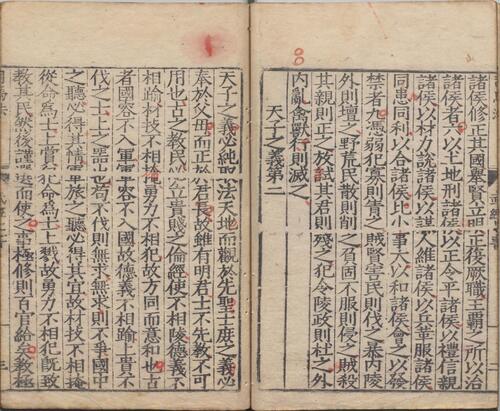 諸侯修正其國舉賢立明正復厥職王霸之所以治
諸侯者六以土地刑諸侯以正令平諸侯以禮信親
諸侯以材力說諸侯以謀人維諸侯以兵革服諸侯
同患同利以合諸侯比小事大以和諸侯會之以發
禁者九憑弱犯寡則眚之賊賢害民則伐之暴內陵
外則壇之野荒民散則削之負固不服則侵之賊殺
其親則正之放弒其君則殘之犯令陵政則杜之外
內亂禽獸行則滅之
天子之義第二
天子之義必純取法天地而觀於先聖士庶之義必
奉於父母而正於君長故雖有明君士不先教不可
用也古之教民必立貴賤之倫經使不相陵德義不
相踰材技不相掩勇力不相犯故方同而意和也古
者國容不入軍軍容不入國故德義不相踰上貴不
伐之士上之器也苟不伐則無求無求則不爭國中
之聽必得其情軍旅之聽必得其宜故材技不相掩
從命為士上賞犯命為士上戮故勇力不相犯既致
教其民然後謹選而使之事極修則百官給矣教極